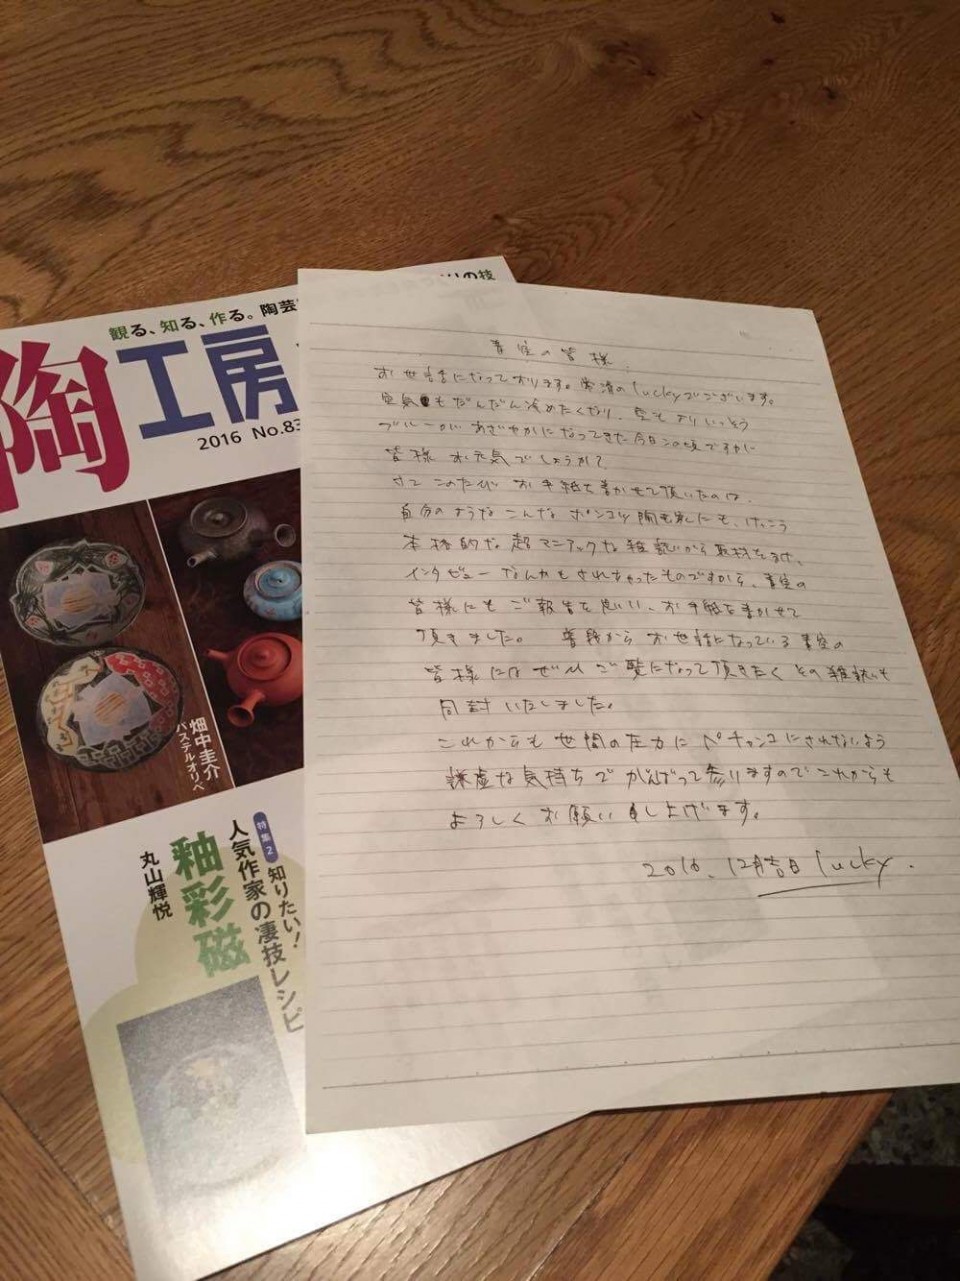 観る、知る、作る。陶芸
りの技
陶工房
2016 No.83
畑中圭介
パステルオリベ
特集2
知りたい!
人気作家の凄技レシピ
釉彩磁
丸山輝悦
青実の皆様
お世話になっております。常滑のluckyでございます。
空気もだんだん冷めたくなり、空もよりいっそう
ブルーがあざやかになってきた今日この頃ですが
皆様お元気でしょうか?
さて このたび お手紙を書かせて頂いたのは、
自分のようなこんなポンコツ陶芸家にも、けっこう
本格的な超マニアックな雑誌から取材をうけ、
インタビューなんかもされちゃったものですから、青実の
皆様にもご報告を思い、お手紙を書かせて
頂きました。 普段からお世話になっている青実の
皆様にはぜひご覧になって頂きたくその雑誌も
同封いたしました。
これからも世間の圧力にペチャンコにされないよう
謙虚な気持ちでがんばって参りますのでこれからも
よろしくお願い申し上げます。
2016、12月吉日 lucky.